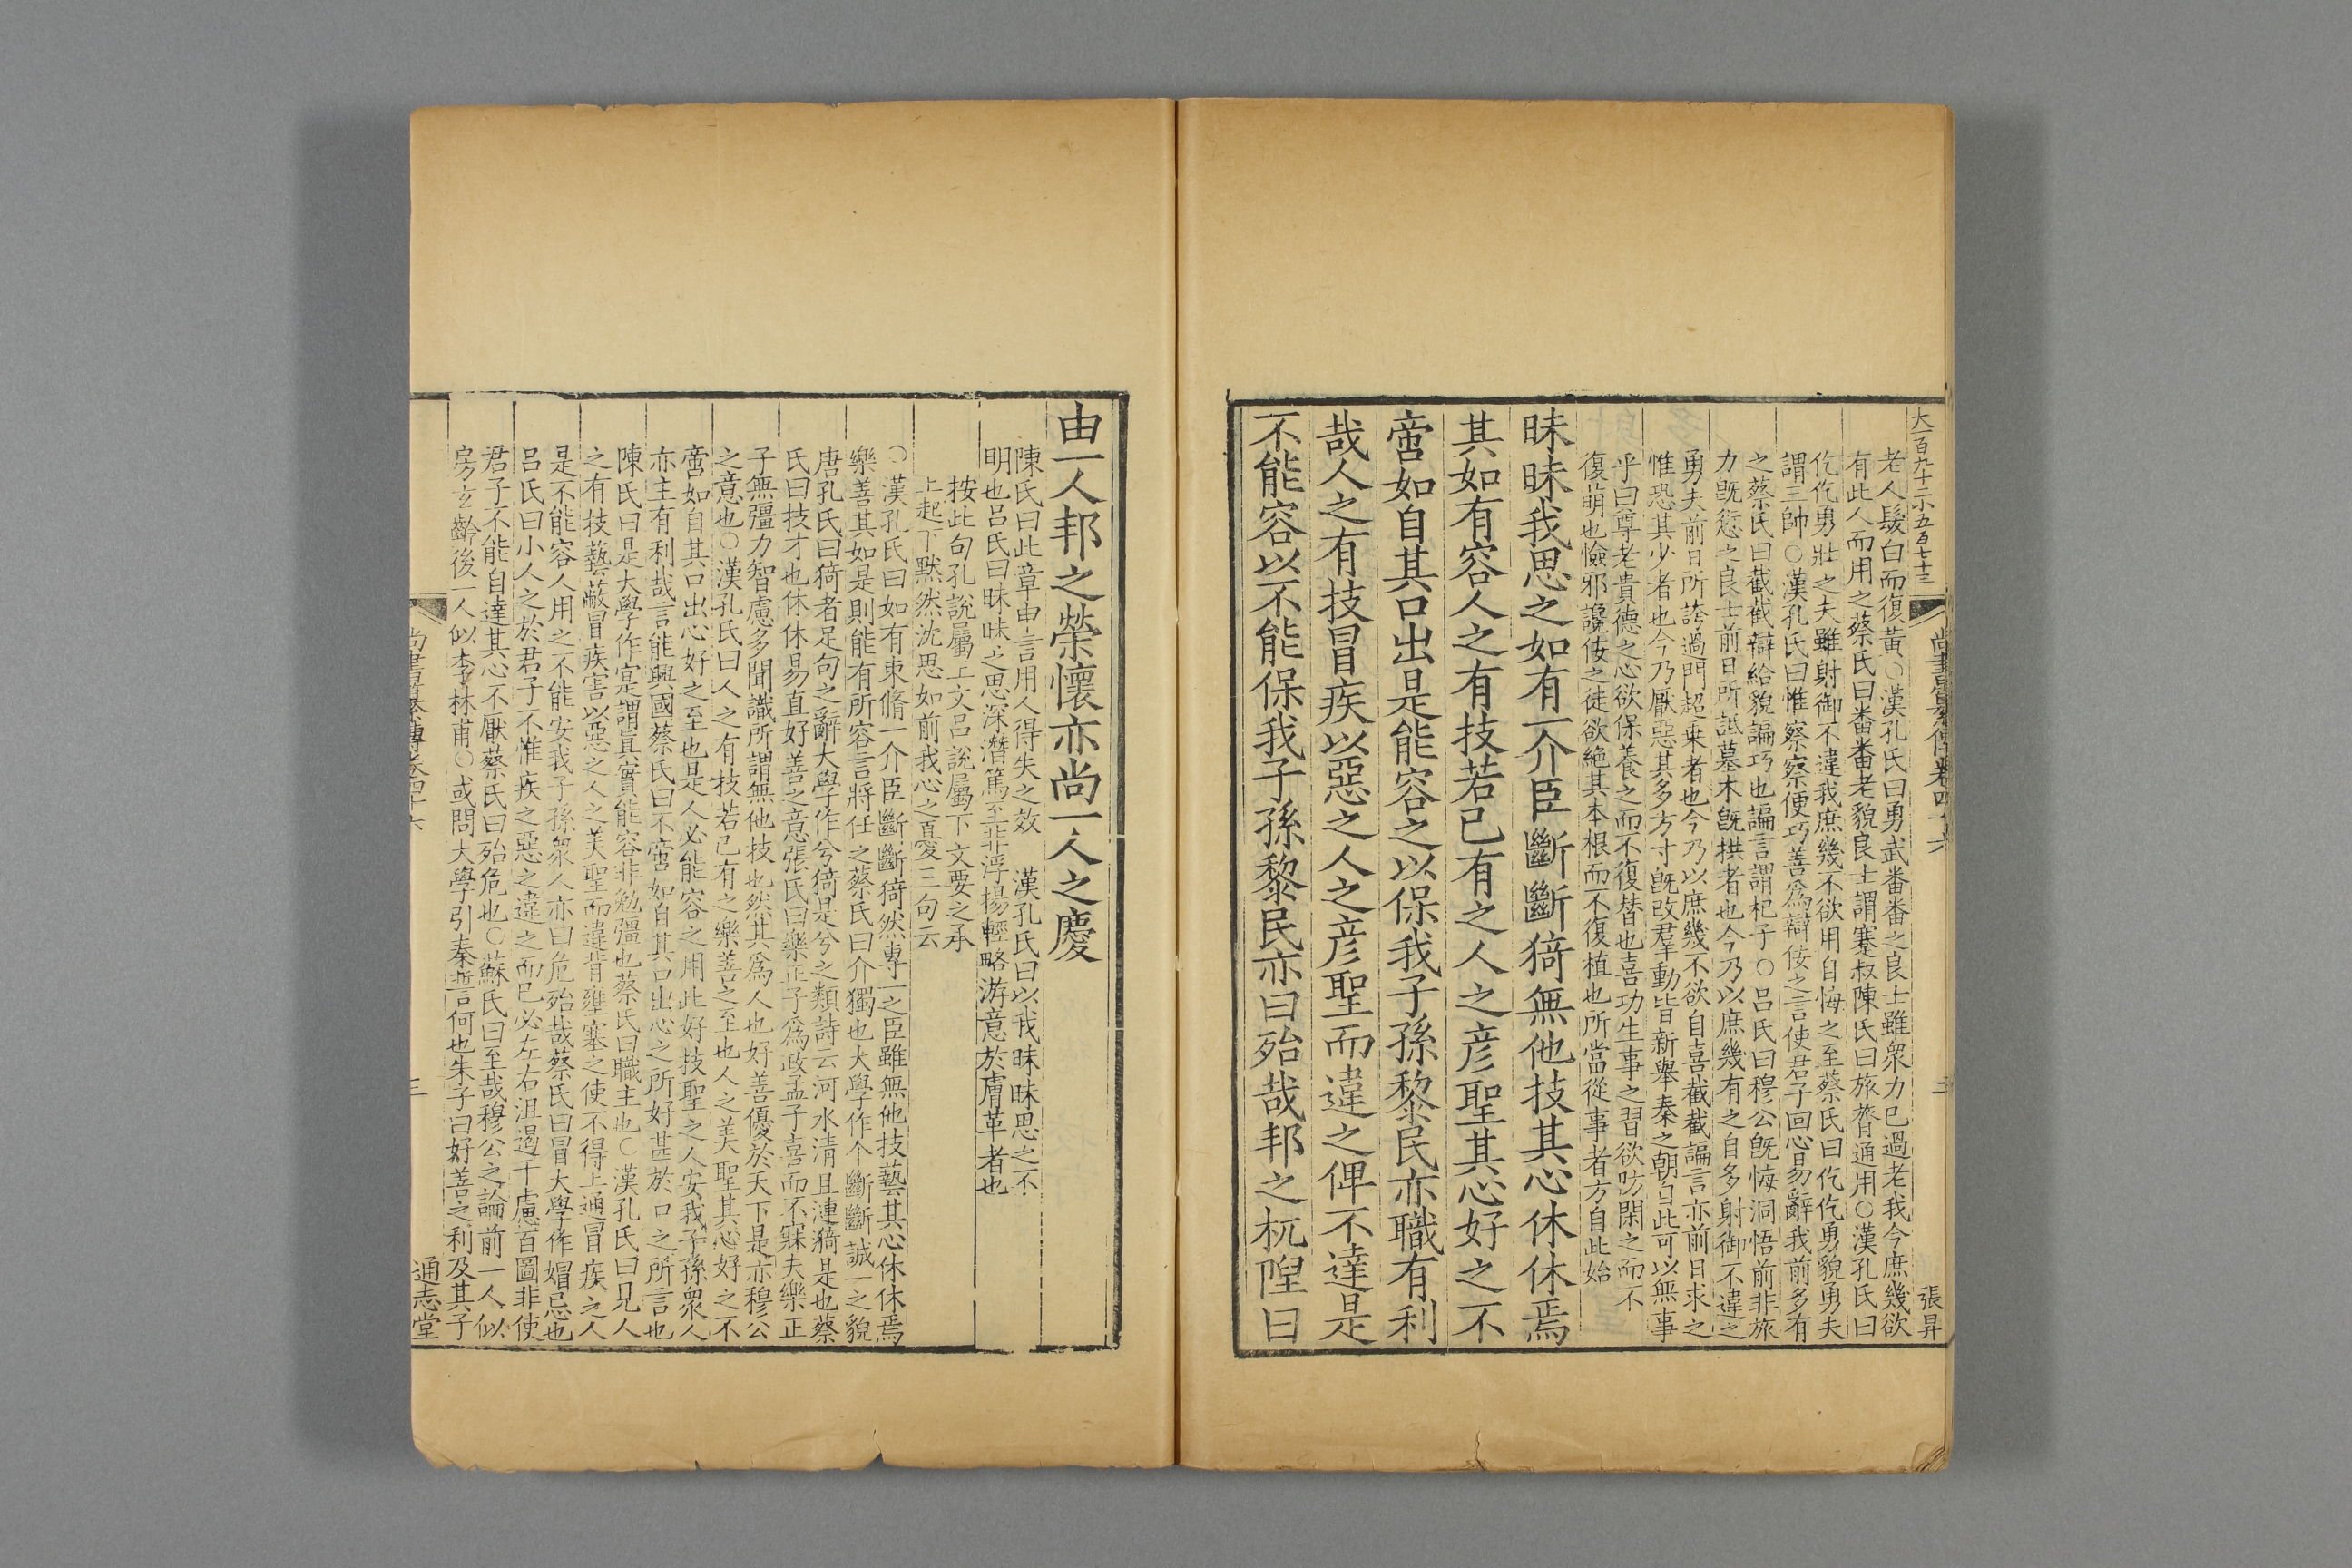 大一百九十二小五百七十三
尚書纂傳卷四十六
三
張昇
老人髮白而復黃○漢孔氏曰勇武番番之良士雖衆力已過老我今庶幾欲
有此人而用之蔡氏曰番番老貌良士謂蹇叔陳氏曰旅膂通用○漢孔氏曰
仡仡勇壯之夫雖射御不違我庶幾不欲用自悔之至蔡氏曰仡仡勇貌勇夫
謂三帥○漢孔氏曰惟察察便巧善爲辯佞之言使君子回心易辭我前多有
之蔡氏曰截截辯給貌諞巧也諞言謂杞子○呂氏曰穆公旣悔洞悟前非旅
力旣愆之良士前日所詆墓木旣拱者也今乃以庶幾有之自多射御不違之
勇夫前日所誇過門超乗者也今乃以庶幾不欲自喜截截諞言亦前日求之
惟恐其少者也今乃厭惡其多方寸旣改羣動皆新舉秦之朝自此可以無事
乎曰尊老貴德之心欲保養之而不復替也喜功生事之習欲防閑之而不
復萌也憸邪讒佞之徒欲絕其本根而不復植也所當從事者方自此始
昧昧我思之如有一介臣斷斷猗無他技其心休休焉
其如有容人之有技若已有之人之彦聖其心好之不
啻如自其口出是能容之以保我子孫黎民亦職有利
哉人之有技冒疾以惡之人之彦聖而違之俾不達是
不能容以不能保我子孫黎民亦曰殆哉邦之杌隉曰
由一人邦之榮懷亦尚一人之慶
陳氏曰此章申言用人得失之效　漢孔氏曰以我昧昧思之不
明也呂氏曰昧昧之思深潛篤至非浮揚輕略游意於膚革者也
按此句孔說屬上文呂說屬下文要之承
上起下默然沈思如前我心之憂三句云
○漢孔氏曰如有束脩一介臣斷斷猗然專一之臣雖無他技藝其心休休焉
樂善其如是則能有所容言將任之蔡氏曰介獨也大學作个斷斷誠一之貌
唐孔氏曰猗者足句之辭大學作兮猗是兮之類詩云河水清且漣猗是也蔡
氏曰技才也休休易直好善之意張氏曰樂正子爲政孟子喜而不寐夫樂正
子無彊力智慮多聞識所謂無他技也然其爲人也好善優於天下是亦穆公
之意也○漢孔氏曰人之有技若已有之樂善之至也人之美聖其心好之不
啻如自其口出心好之至也是人必能容之用此好技聖之人安我子孫衆人
亦主有利哉言能興國蔡氏曰不啻如自其口出心之所好甚於口之所言也
陳氏曰是大學作寔謂眞實能容非勉彊也蔡氏曰職主也○漢孔氏曰見人
之有技藝蔽冒疾害以惡之人之美聖而違背壅塞之使不得上通冒疾之人
是不能容人用之不能安我子孫衆人亦曰危殆哉蔡氏曰冒大學作媢忌也
呂氏曰小人之於君子不惟疾之惡之違之而已必左右沮遏千慮百圖非使
君子不能自達其心不厭蔡氏曰殆危也○蘇氏曰至哉穆公之論前一人似
房玄齡後一人似李林甫○或問大學引秦誓言何也朱子曰好善之利及其子
尚書纂傳卷四十六
三
通志堂